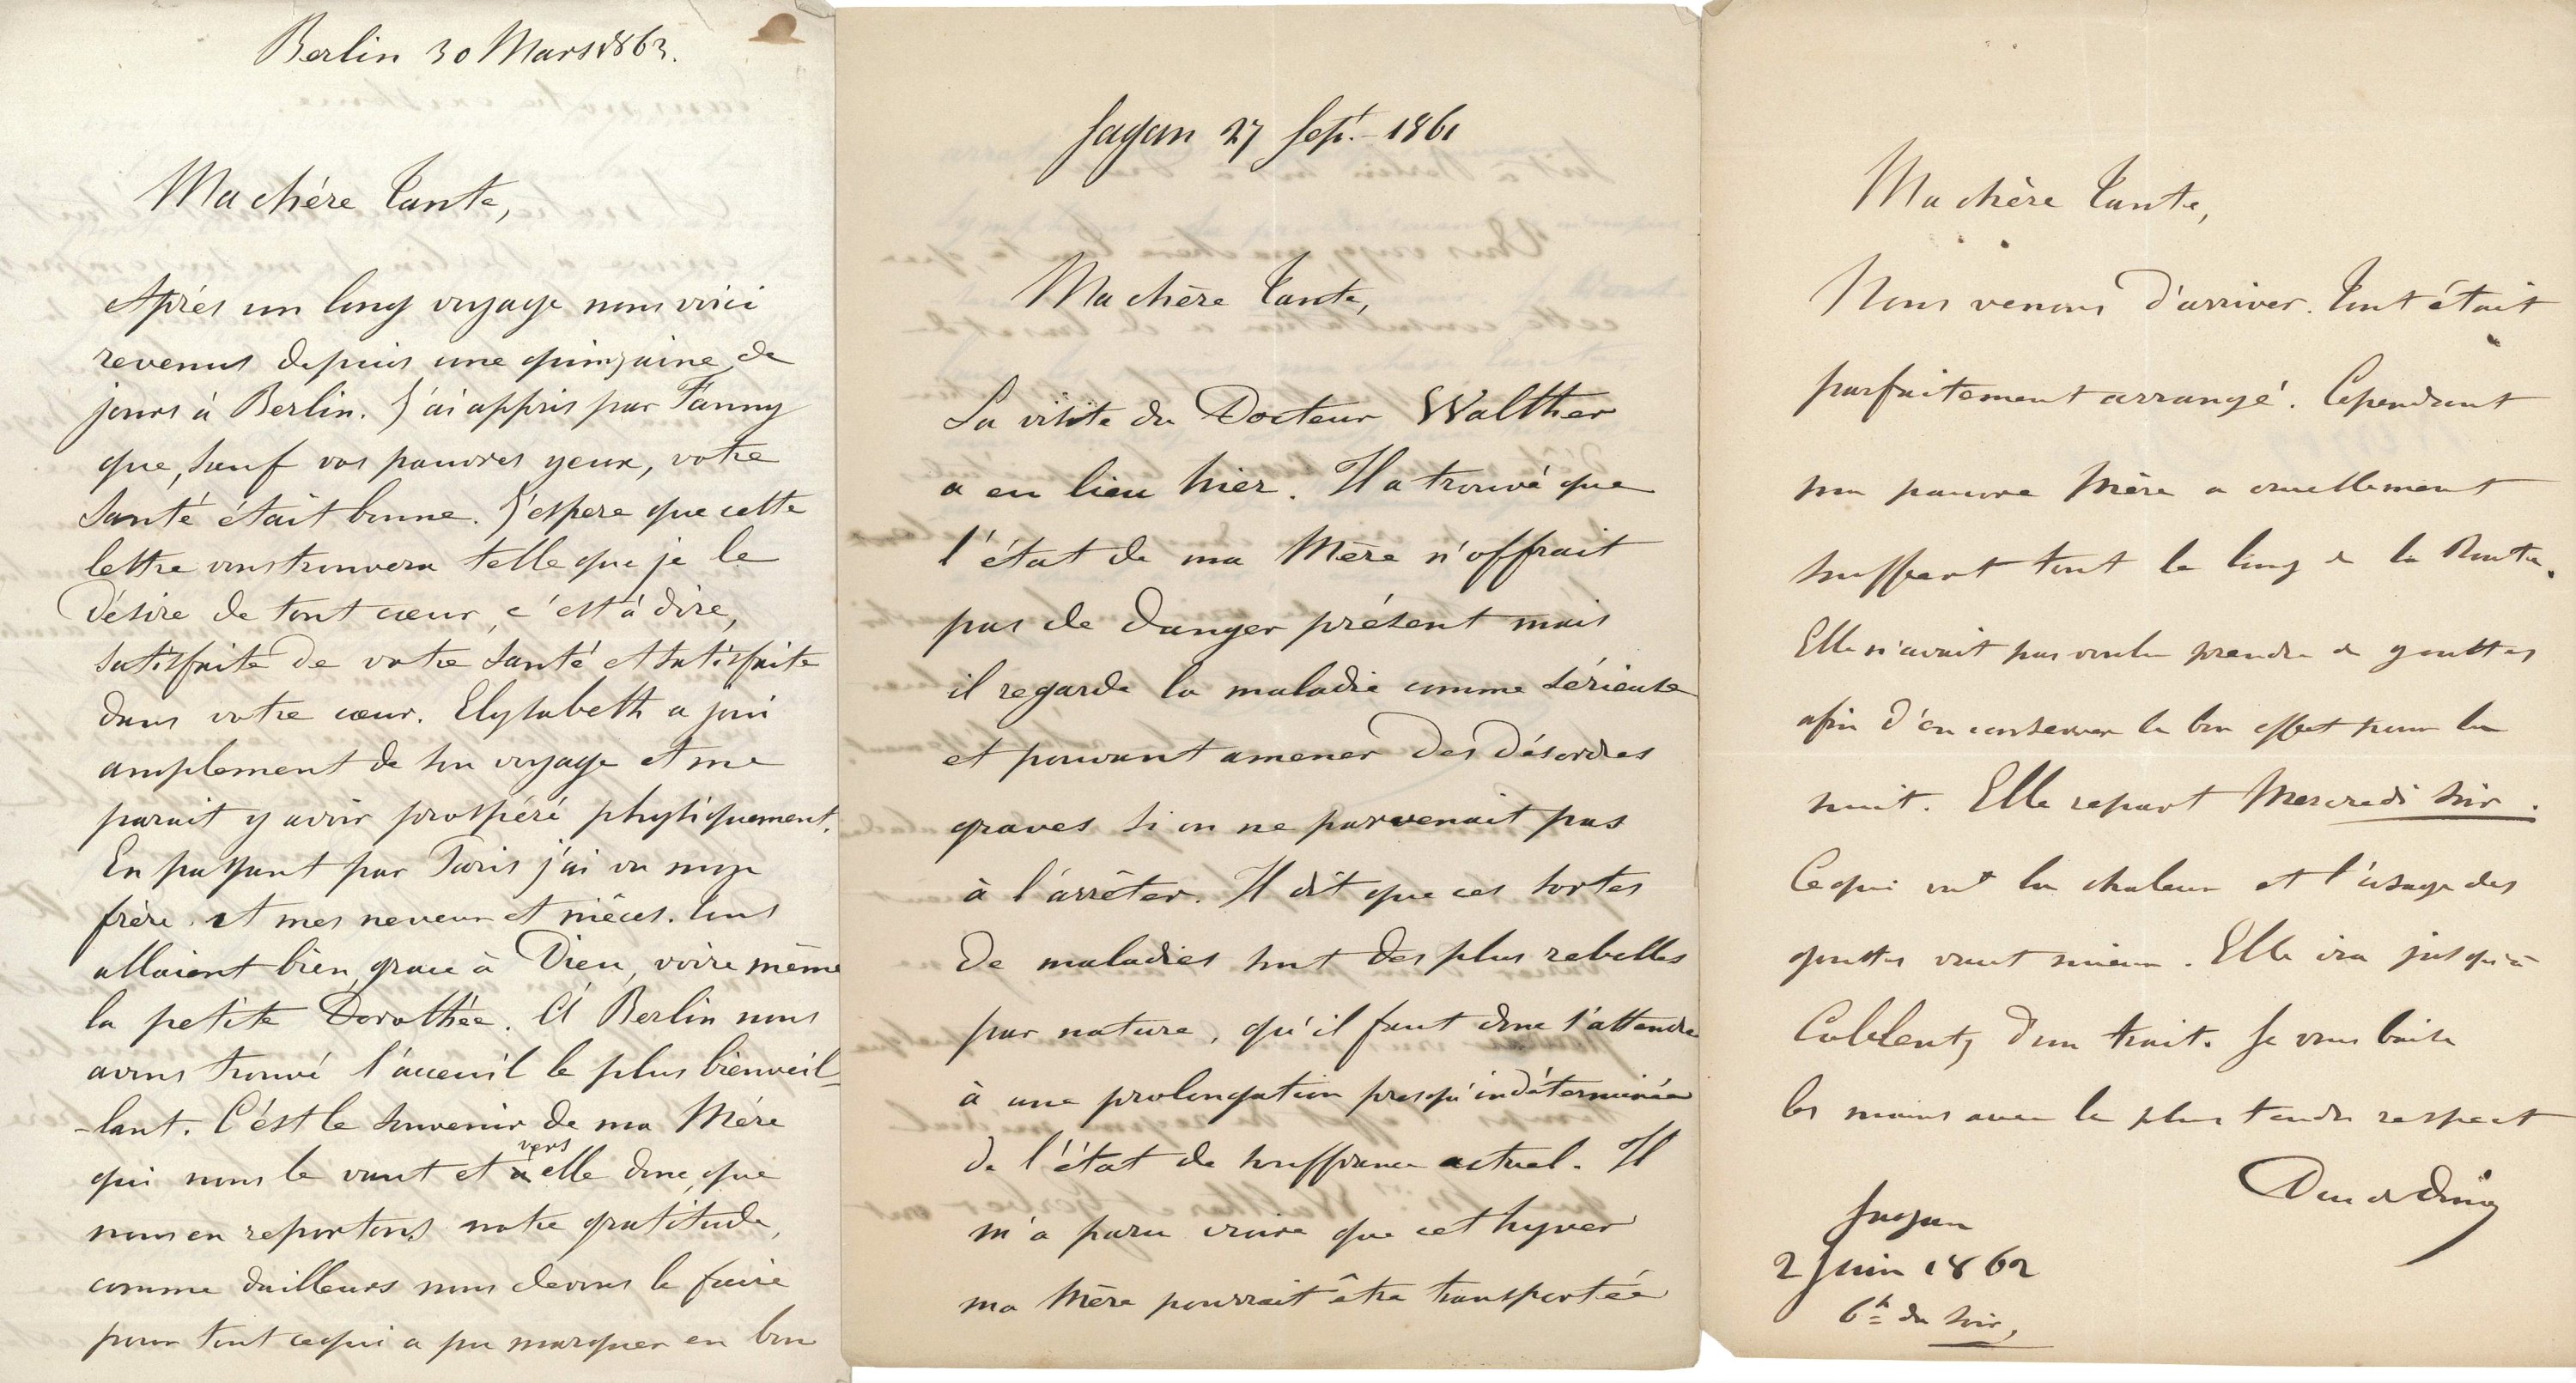 Berlin 30 Mars 1863.
Ma chére Tante,
Aprés un long voyage nous voici
revenus depuis une quinzaine de
jours à Berlin. J'ai appris par Fanny
que, sauf vos pauvres yeux, votre
Santé était bonne. J'espere que cette
lettre vous trouvera telle que je le
Désire de tout cœur, c'est à dire,
satisfaite de votre santé et satisfaite
dans votre cœur. Elysabeth a joui
amplement de son voyage et me
parait y avoir prospéré physiquement.
En passant par Paris j'ai vu mon
frère et mes neveux et niéces. Tous
allaient bien, grace à Dieu, voire même
la petite Dorothée. A Berlin nous
avons trouvé l'acceuil le plus bienveil-
-lant. C'est le souvenir de ma Mére
qui nous le vaut et vers elle donc, que
nous en reportons notre gratitude,
comme dailleurs nous devons le faire
pour tout cequi a pu marquer en bon
Sagan 27 Sept. - 1861
Ma chère Tante,
La visite du Docteur Walther
a eu lieu hier. Il a trouvé que
l'état de ma Mère n'offrait
pas de danger présent mais
il regarde la maladie comme sérieuse
et pouvant amener des désordres
graves si on ne parvenait pas
à l'arrêter. Il dit que ces sortes
de maladies sont des plus rebelles
par nature, qu'il faut donc s'attendre
à une prolongation presqu'indéterminée
de l'état de souffrance actuel. Il
m'a paru croire que cet hyver
ma Mère pourrait être transportée
Ma chère Tante,
Nous venons d'arriver. Tout était
parfaitement arrangé. Cependant
ma pauvre Mère a cruellement
souffert tout le long de la Route.
Elle n'avait pas voulu prendre de gouttes
afin d'en conserver le bon effet pour la
nuit. Elle repart Mercredi soir.
Cequi vut la chaleur et l'usage des
gouttes vaut mieux. Elle ira jusqu'à
Coblentz d'un trait. Je vous baise
les mains avec le plus tendre respect
Duc de Dino
Sagan
2 Juin 1862
6h du soir,